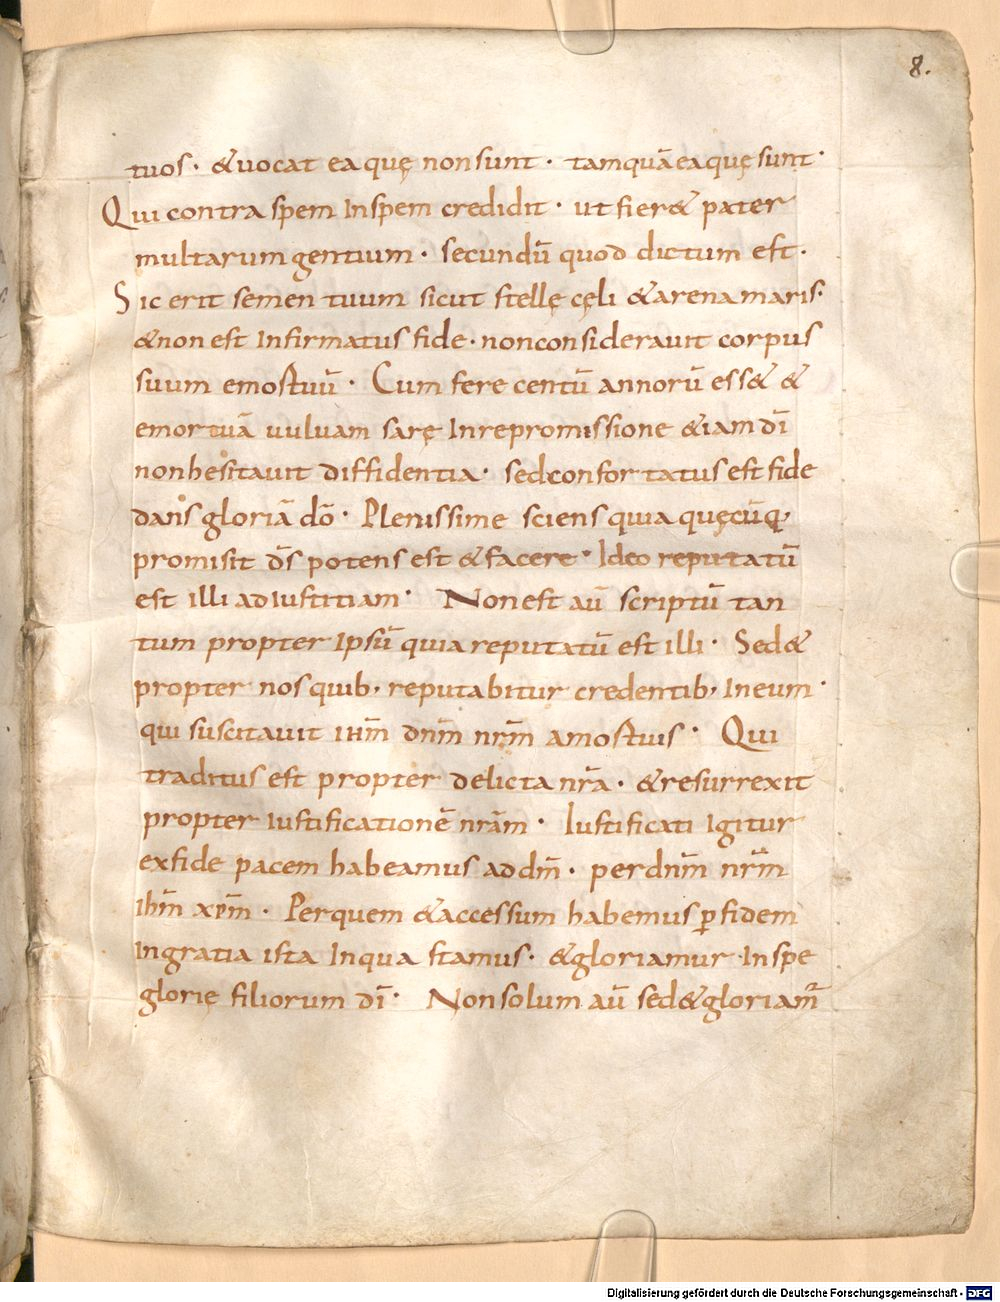 8.
tuos · & uocat ea quę non sunt · tamquā ea quę sunt ·
Qui contra spem In spem credidit · ut fier& pater
multarum gentium · secundū quod dictum est ·
Sic erit semen tuum sicut stellę cęli & arena maris ·
& non est Infirmatus fide · non considerauit corpus
suum emortuū · Cum fere centū annorū ess& &
emortuā uuluam sarę In repromissione & iam dī
non hesitauit diffidentia · sed confortatus est fide
dans gloriā dō · Plenissime sciens quia quęcūq;
promisit d̄s potens est & facere · Ideo reputatū
est illi ad Iustitiam · Non est aū scriptū tan
tum propter Ipsū quia reputatū est illi · Sed &
propter nos quib; reputabitur credentib; In eum ·
qui suscitauit ihm̄ dnm̄ nrm̄ a mortuis · Qui
traditus est propter delicta nr̄a · & resurrexit
propter iustificationē nrām · Iustificati Igitur
ex fide pacem habeamus ad dm̄ · per dnm̄ nrm̄
ihm̄ xpm̄ · Per quem & accessum habemus ꝑ fidem
In gratia ista In qua stamus · & gloriamur In spe
glorię filiorum dī · Non solum aū sed & gloriam̄
Digitalisierung gefördert durch die Deutsche Forschungsgemeinschaft - DFG